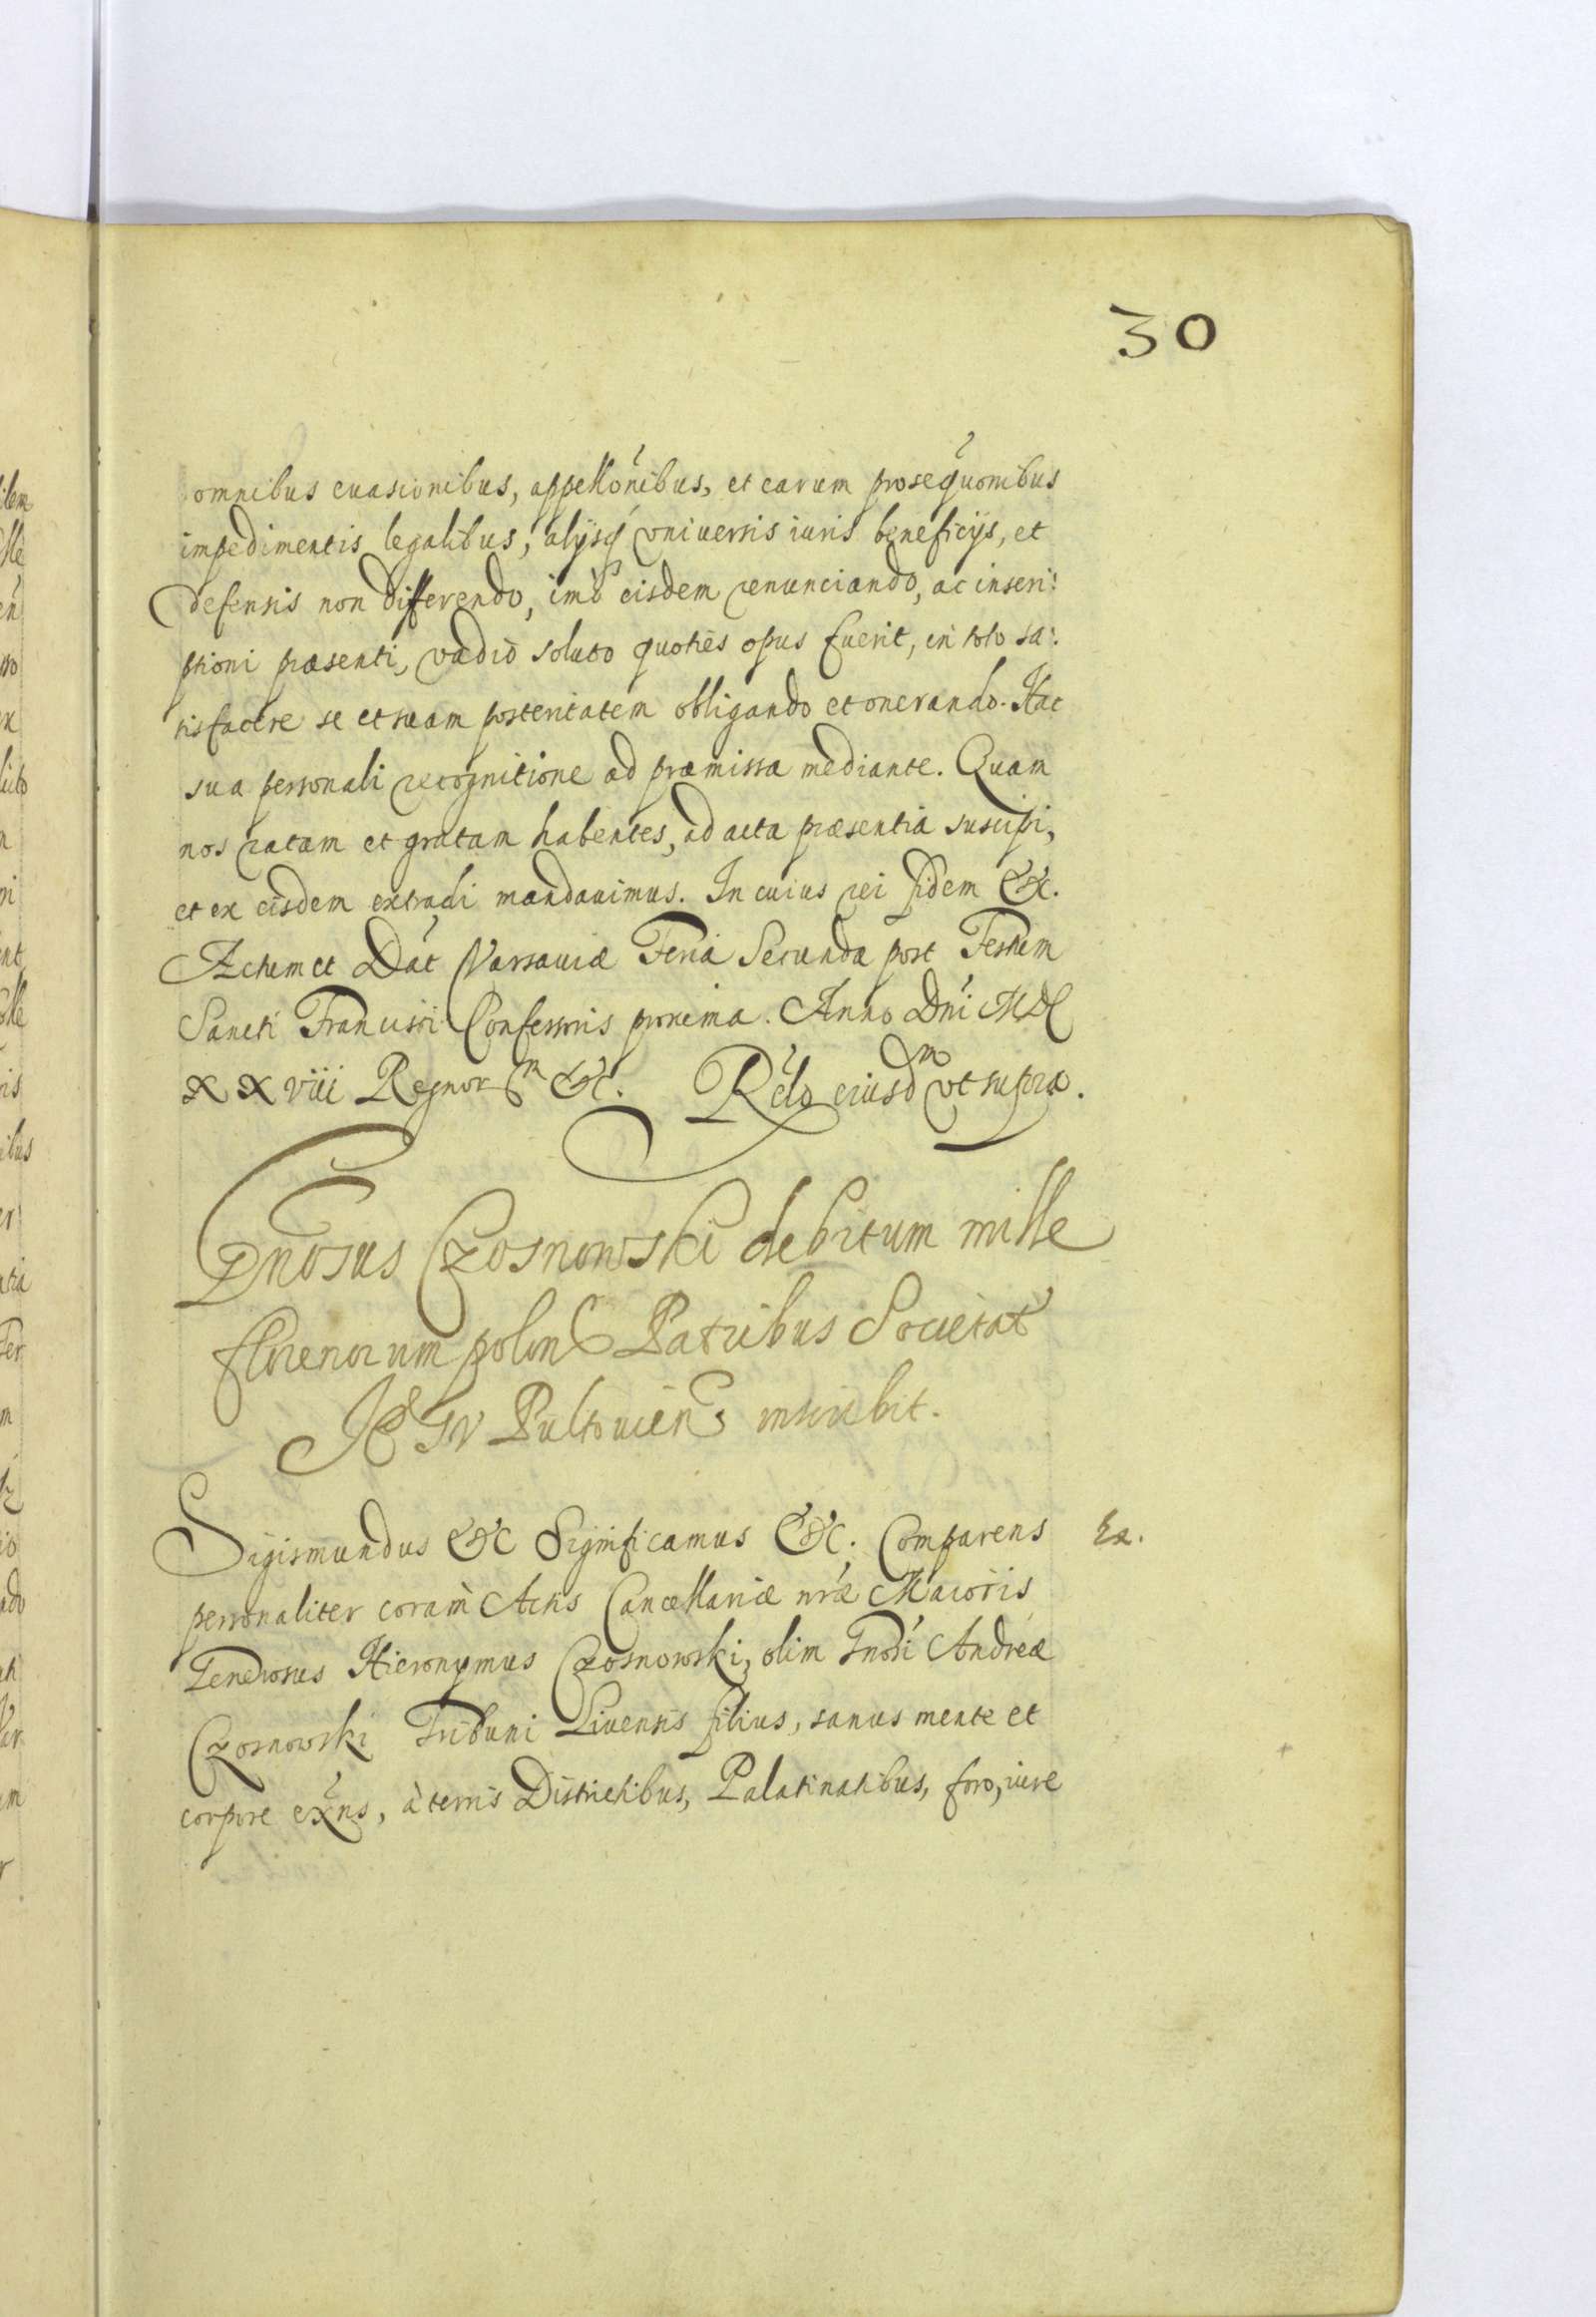 30
omnibus euasionibus, appellõnibus, et earum prosequõnibus
impedimentis legalibus, alijsq́ vniuersis iuris beneficijs, et
defensis non differendo, imò eisdem renunciando, ac inscri:
ptioni præsenti, vadio soluto quoties opus fuerit, in toto sa:
tisfacere se et suam posteritatem obligando et onerando. Hac
sua personali recognitione ad præmissa mediante. Quam
nos ratam et gratam habentes, ad acta præsentia suscipi,
et ex eisdem extradi mandauimus. In cuius rei fidem &c.
Actum et Dat́ Varsauiæ Feria Secunda post Festum
Sancti Francisci Confessoris proxima. Anno Dńi MDC
XXviii Regnor m &c. Rélo eiusdm vt supra.
Gnosus Czosnowski debitum mille
florenorum polon Patribus Societat
IESV Pultouien inscribit.
Sigismundus &c Significamus &c. Comparens
personaliter coram Actis Cancellariæ nræ Maioris
Generosus Hieronymus Czosnowski, olim Gnosi Andreæ
Czosnowski Tribuni Liuensis filius, sanus mente et
corpore exñs, à terris Districtibus, Palatinatibus, foro, iure